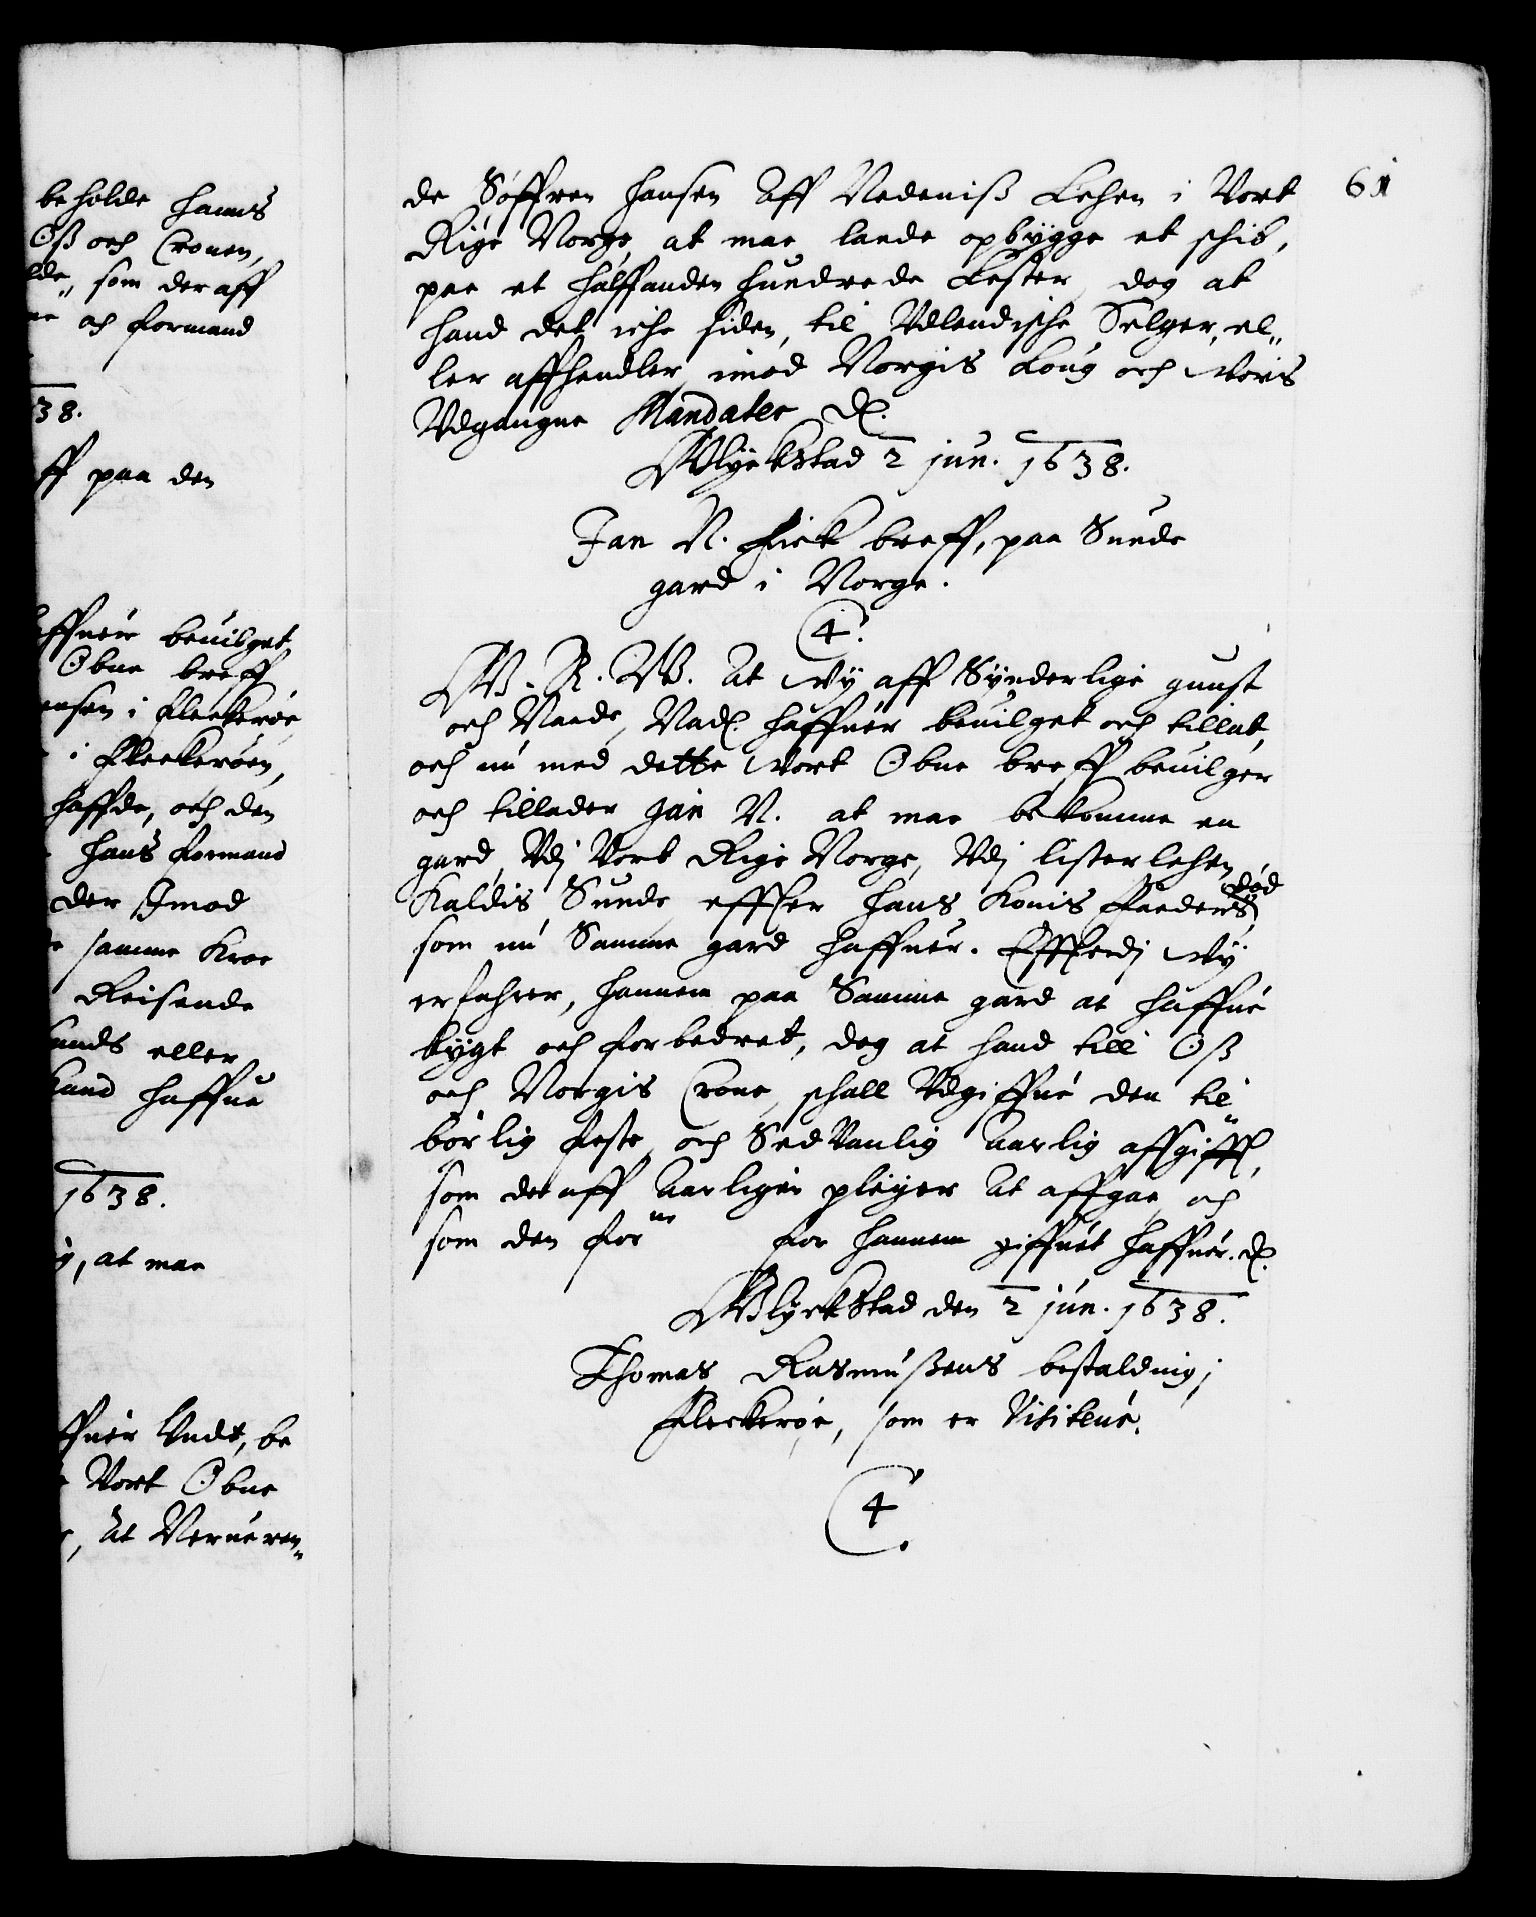 beholde hanns
Oß och Cronen,
lde,, som der aff
ne och formand
38.
ff paa den
affuer beuilget
Obne breff
ensen i fleckerøe
i fleckerøen,
haffde, och den
hans formand
der Imod
samme kroe
Reisende
lands eller
hand haffue
1638.
g, at maa
ffuer Vndt, be
Vort Obne
, at Verue ren,,
61
de Søffren hansen aff Nedeniß Lehen i Vort
Rige Norge, at maa lande opbygge et schib,
paa et halffanden hundrede Lester, dog at
hand det iche siden, til Vdlendische Selger, el,,
ler affhendler imod Norgis Loug och Voris
Vdgangne Mandater &c.
Glyckstad 2 jun. 1638.
Jan N. fick breff, paa Sunde
gard i Norge.
4.
W. G. A. W. At Wy aff Synderlige gunst
och Naade, Naad. haffuer beuilget och tilladt,
och nu med dette Wort Obne breff beuilger
och tillader Jan N. at maa bekomme en
gard, Vdj Vort Rige Norge, Vdj lister lehen
Kaldis Sunde, effter hans Konis faders død
som nu Samme gard haffuer. Effterdj Wy
erfahrer, hannem paa Samme gard at haffue
bygt och forbedret, dog at hand till Oß
och Norgis Crone, schall Vdgiffue den til,,
børlig feste, och Sedvanlig aarlig affgifft,
som der aff aarligen pleyer at affgaa, och
som den for ne for hannem giffuet haffuer. &c.
Glyckstad den 2 jun. 1638.
Thomas Rasmußens bestalding,
Fleckerøe, som er Visiteur.
4.